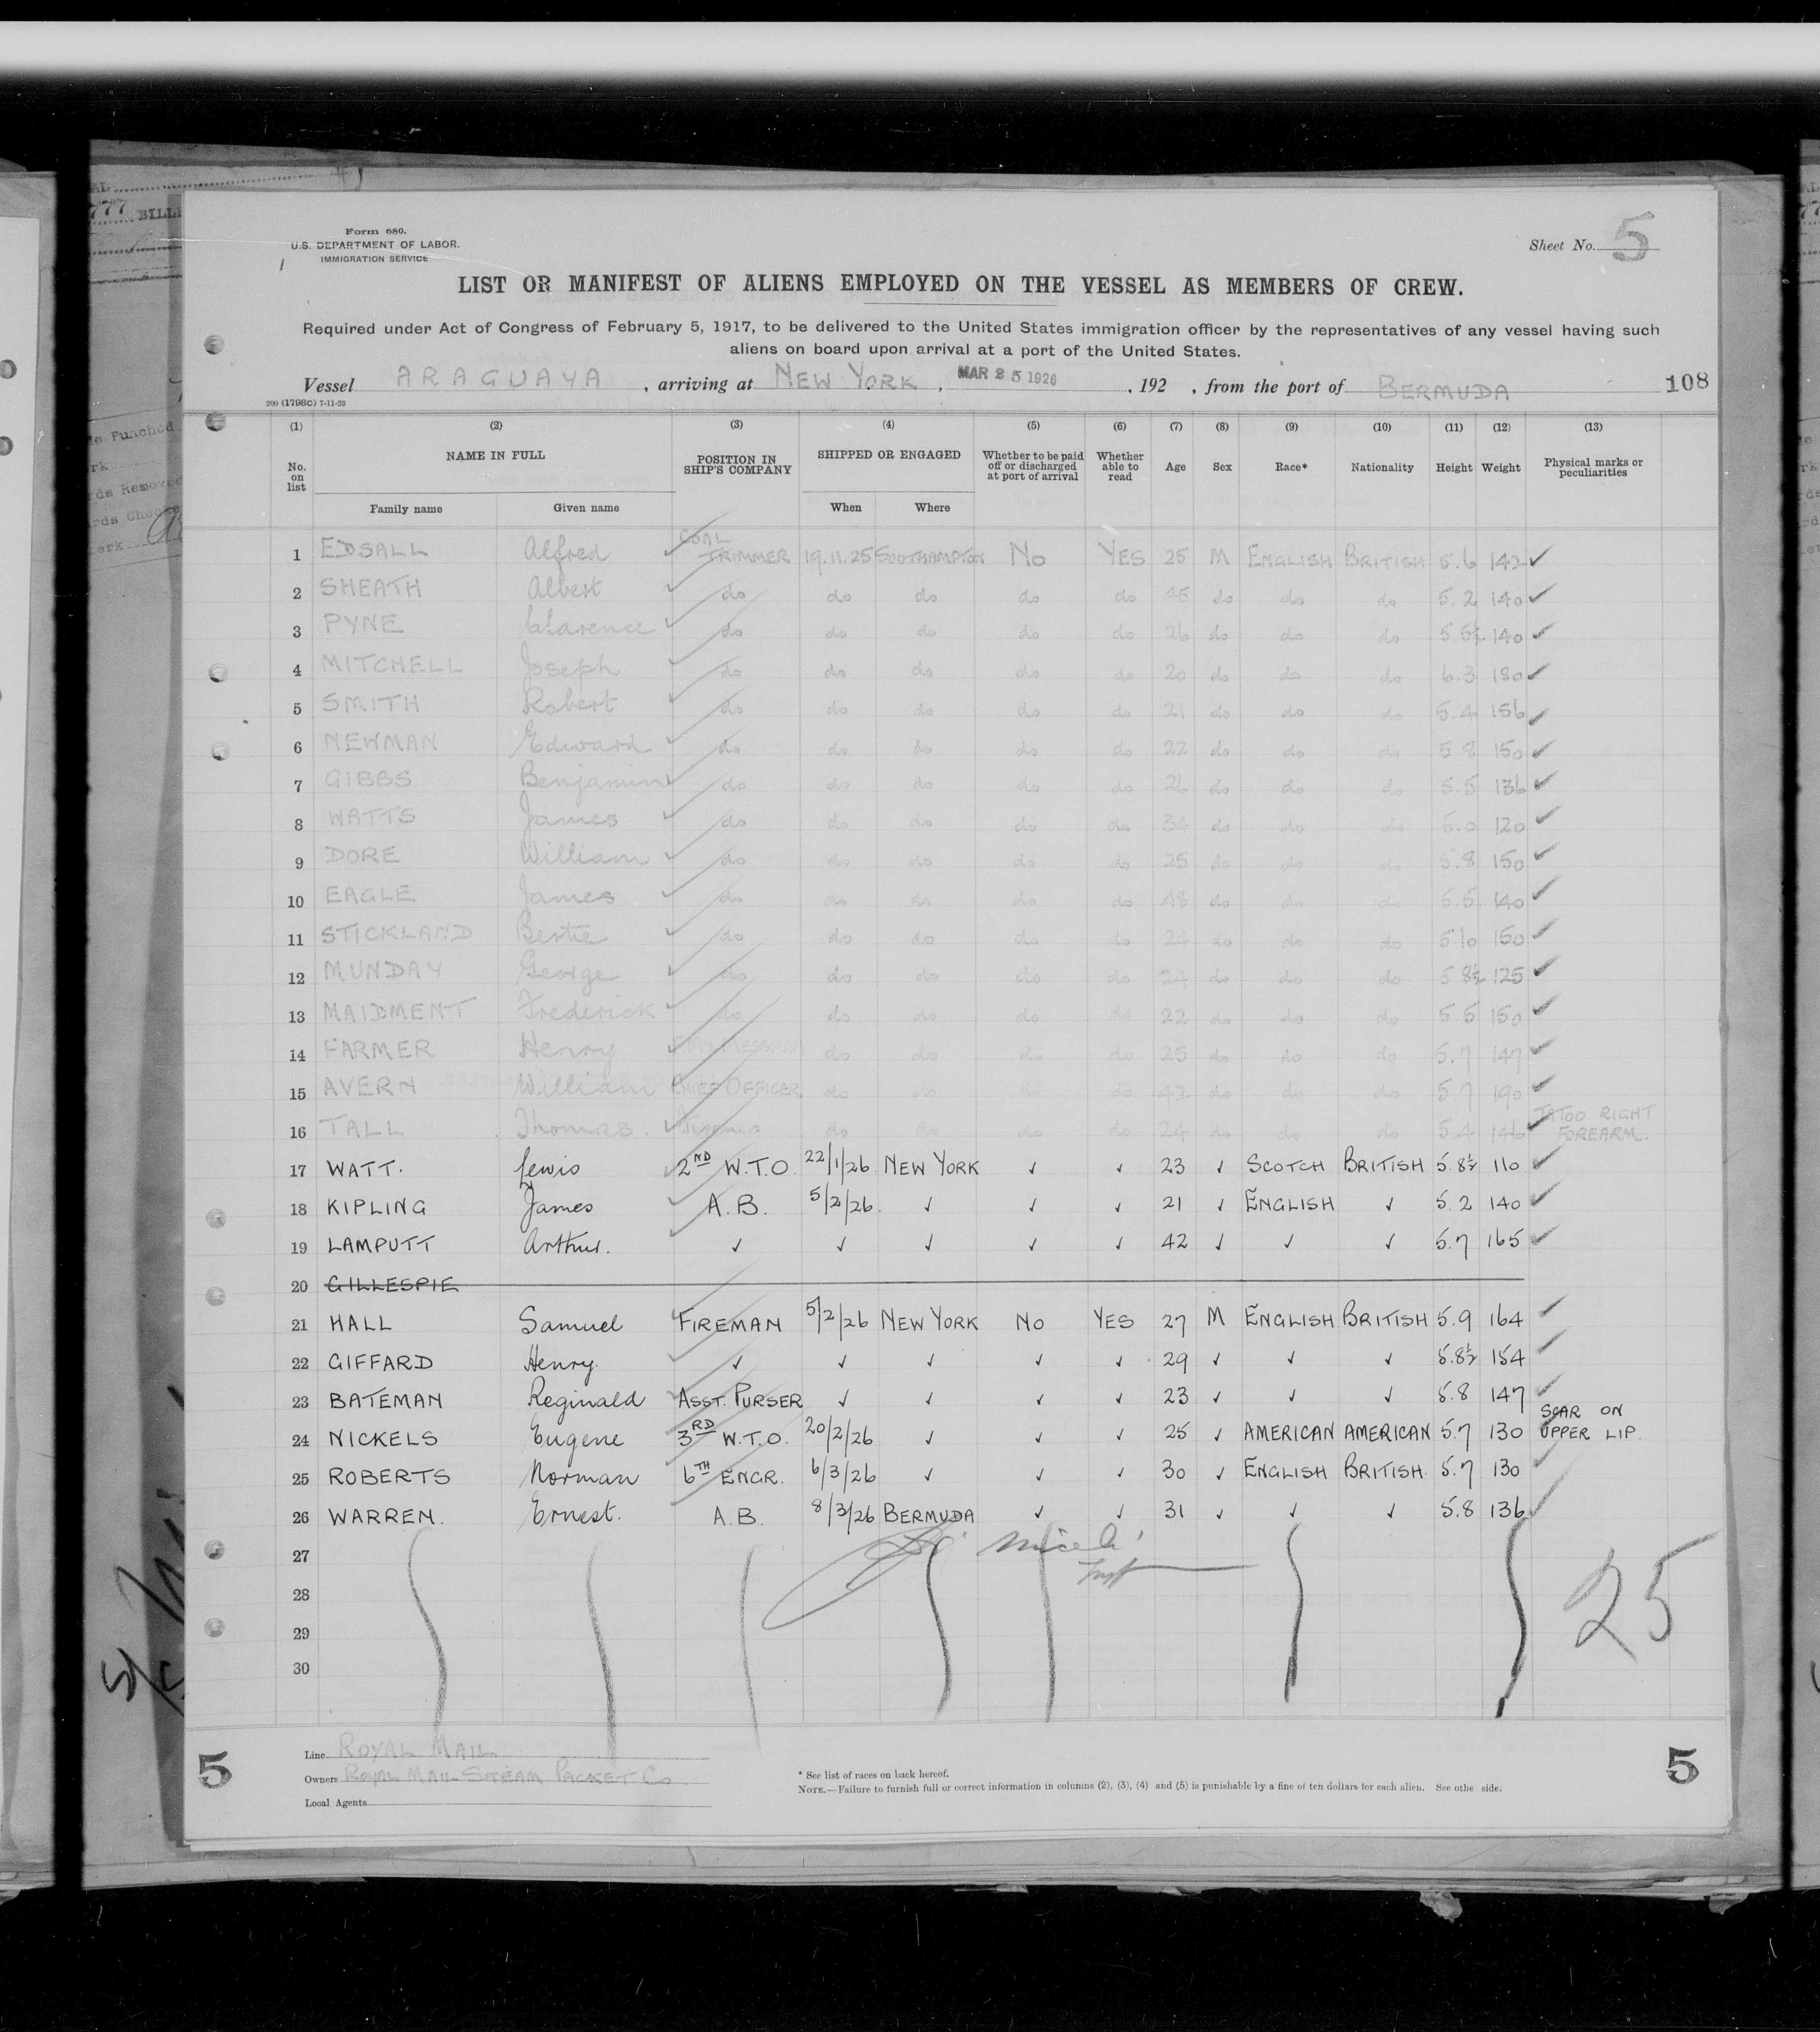 Form 680.
U.S. DEPARTMENT OF LABOR.
IMMIGRATION SERVICE
Sheet No. 5
LIST OR MANIFEST OF ALIENS EMPLOYED ON THE VESSEL AS MEMBERS OF CREW.
Required under Act of Congress of February 5, 1917, to be delivered to the United States immigration officer by the representatives of any vessel having such
aliens on board upon arrival at a port of the United States.
Vessel ARAGUAYA, arriving at NEW YORK, MAR 25 1926, 192 , from the port of BERMUDA 108
200 (1798C) 7-11-23
(1) (2) (3) (4) (5) (6) (7) (8) (9) (10) (11) (12) (13)
No. on list NAME IN FULL POSITION IN SHIP'S COMPANY SHIPPED OR ENGAGED Whether to be paid off or discharged at port of arrival Whether able to read Age Sex Race* Nationality Height Weight Physical marks or peculiarities
Family name Given name When Where
1 EDSALL Alfred ✓ COAL TRIMMER 19.11.25 SOUTHAMPTON No YES 25 M ENGLISH BRITISH 5.6 142 ✓
2 SHEATH Albert ✓ do do do do do 45 do do do 5.2 140 ✓
3 PYNE Clarence ✓ do do do do do 26 do do do 5.5½ 140 ✓
4 MITCHELL Joseph ✓ do do do do do 20 do do do 6.3 180 ✓
5 SMITH Robert ✓ do do do do do 21 do do do 5.4 156 ✓
6 NEWMAN Edward ✓ do do do do do 22 do do do 5 8 150 ✓
7 GIBBS Benjamin ✓ do do do do do 26 do do do 5.5 136 ✓
8 WATTS James ✓ do do do do do 34 do do do 5.0 120 ✓
9 DORE William ✓ do do do do do 25 do do do 5.8 150 ✓
10 EAGLE James ✓ do do do do do 48 do do do 5.5 140 ✓
11 STICKLAND Bertie ✓ do do do do do 24 do do do 5.10 150 ✓
12 MUNDAY George ✓ do do do do do 24 do do do 5 8½ 125 ✓
13 MAIDMENT Frederick ✓ do do do do do 22 do do do 5 5 150 ✓
14 FARMER Henry MESSMAN do do do do 25 do do do 5.7 147 ✓
15 AVERN William CHIEF OFFICER do do do do 42 do do do 5 7 190 ✓
16 TALL Thomas. ✓ do do do do 24 do do do 5.4 146 ✓ TATOO RIGHT FOREARM.
17 WATT. Lewis 2ND W.T.O. 22/1/26 NEW YORK ✓ ✓ 23 ✓ SCOTCH BRITISH 5.8½ 110 ✓
18 KIPLING James A.B. 5/2/26. ✓ ✓ ✓ 21 ✓ ENGLISH ✓ 5.2 140 ✓
19 LAMPUTT Arthur. ✓ ✓ ✓ ✓ ✓ 42 ✓ ✓ ✓ 5.7 165 ✓
20 GILLESPIE
21 HALL Samuel FIREMAN 5/2/26 NEW YORK No YES 27 M ENGLISH BRITISH 5.9 164 ✓
22 GIFFARD Henry. ✓ ✓ ✓ ✓ ✓ 29 ✓ ✓ ✓ 5.8½ 154 ✓
23 BATEMAN Reginald ASST. PURSER ✓ ✓ ✓ ✓ 23 ✓ ✓ ✓ 5.8 147 ✓
24 NICKELS Eugene 3RD W.T.O. 20/2/26 ✓ ✓ ✓ 25 ✓ AMERICAN AMERICAN 5.7 130 SCAR ON UPPER LIP.
25 ROBERTS Norman 6TH ENGR. 6/3/26 ✓ ✓ ✓ 30 ✓ ENGLISH BRITISH. 5.7 130 ✓
26 WARREN. Ernest. A.B. 8/3/26 BERMUDA ✓ ✓ 31 ✓ ✓ ✓ 5.8 136 ✓
27
28
29
30
25
5 5
Line ROYAL MAIL
Owners ROYAL MAIL STEAM PACKET Co
Local Agents
* See list of races on back hereof.
NOTE.—Failure to furnish full or correct information in columns (2), (3), (4) and (5) is punishable by a fine of ten dollars for each alien. See othe side.